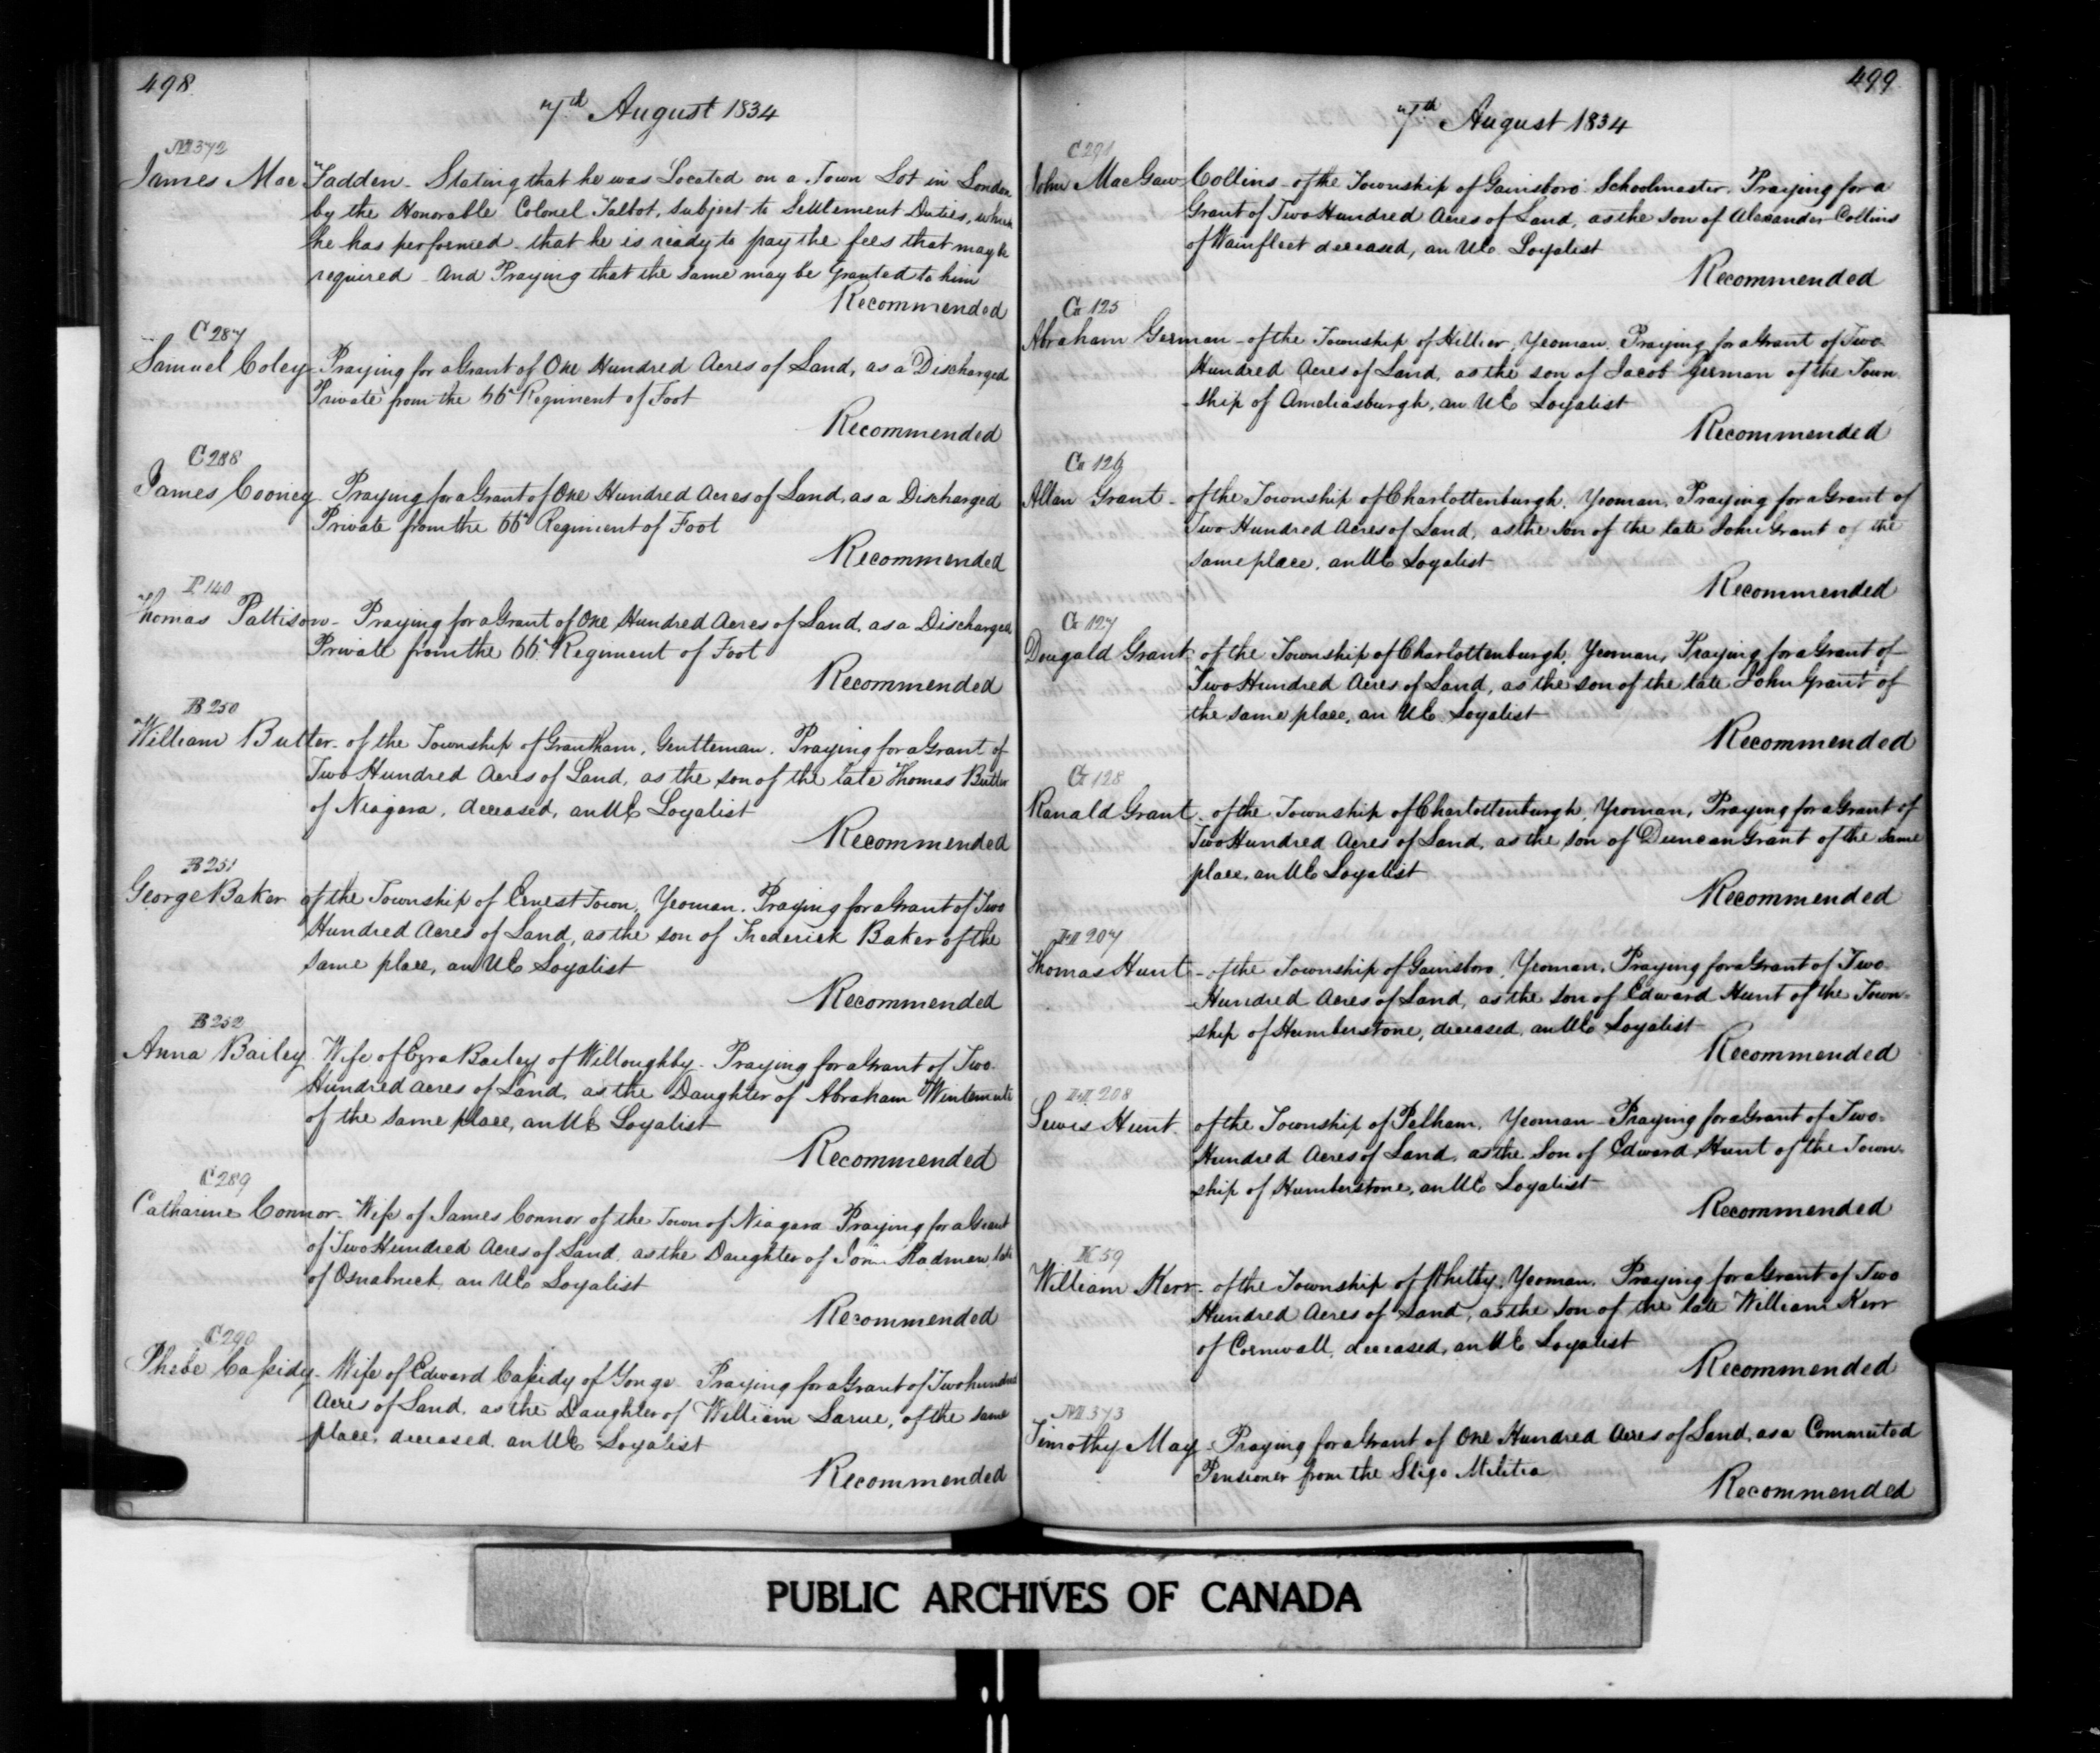 498
7th August 1834
M 372
James Mac Fadden - Stating that he was Located on a Town Lot in London
by the Honorable Colonel Talbot, subject to Settlement Duties, which
he has performed - that he is ready to pay the fees that may be
required - And Praying that the same may be Granted to him
Recommended
C 287
Samuel Coley - Praying for a Grant of One Hundred Acres of Land, as a Discharged
Private from the 66th Regiment of Foot
Recommended
C 288
James Cooney - Praying for a Grant of One Hundred Acres of Land, as a Discharged
Private from the 66th Regiment of Foot
Recommended
P 140
Thomas Pattison - Praying for a Grant of One Hundred Acres of Land, as a Discharged
Private from the 66th Regiment of Foot
Recommended
B 250
William Butler - of the Township of Grantham, Gentleman. Praying for a Grant of
Two Hundred Acres of Land, as the son of the late Thomas Butler
of Niagara, deceased, an UE Loyalist
Recommended
B 251
George Baker of the Township of Ernest Town, Yeoman. Praying for a Grant of Two
Hundred Acres of Land, as the son of Frederick Baker of the
same place, an UE Loyalist
Recommended
B 252
Anna Bailey - Wife of Ezra Bailey of Willoughby - Praying for a Grant of Two
Hundred Acres of Land, as the Daughter of Abraham Wintemute
of the same place, an UE Loyalist
Recommended
C 289
Catharine Connor - Wife of James Connor of the Town of Niagara Praying for a Grant
of Two Hundred Acres of Land, as the Daughter of John Kadman late
of Osnabruck an UE Loyalist
Recommended
C 290
Phebe Cassidy - Wife of Edward Cassidy of Yonge - Praying for a Grant of Two hundred
Acres of Land, as the Daughter of William Larue, of the same
place, deceased, an UE Loyalist
Recommended
499
7th August 1834
C 291
John MacGaw Collins - of the Township of Gainsboro Schoolmaster. Praying for a
Grant of Two Hundred Acres of Land, as the son of Alexander Collins
of Wainfleet deceased, an UE Loyalist
Recommended
G 125
Abraham German - of the Township of Hillier, Yeoman. Praying for a Grant of Two
Hundred Acres of Land, as the son of Jacob German of the Town
-ship of Ameliasburgh, an UE Loyalist
Recommended
G 126
Allan Grant - of the Township of Charlottenburgh. Yeoman, Praying for a Grant of
Two Hundred Acres of Land, as the son of the late John Grant of the
same place, an UE Loyalist
Recommended
G 127
Dougald Grant - of the Township of Charlottenburgh, Yeoman, Praying for a Grant of
Two Hundred Acres of Land, as the son of the late John Grant of
the same place, an UE Loyalist
Recommended
G 128
Ranald Grant - of the Township of Charlottenburgh, Yeoman, Praying for a Grant of
Two Hundred Acres of Land, as the son of Duncan Grant of the same
place, an UE Loyalist
Recommended
H 207
Thomas Hunt - of the Township of Gainsboro, Yeoman, Praying for a Grant of Two
Hundred Acres of Land, as the son of Edward Hunt of the Town-
ship of Humberstone, deceased, an UE Loyalist
Recommended
H 208
Lewis Hunt of the Township of Pelham, Yeoman - Praying for a Grant of Two
Hundred Acres of Land, as the Son of Edward Hunt of the Town-
ship of Humberstone, an UE Loyalist
Recommended
K 59
William Kerr - of the Township of Whitby, Yeoman. Praying for a Grant of Two
Hundred Acres of Land, as the son of the late William Kerr
of Cornwall, deceased, an UE Loyalist
Recommended
M 373
Timothy May - Praying for a Grant of One Hundred Acres of Land, as a Commuted
Pensioner from the Sligo Militia
Recommended
PUBLIC ARCHIVES OF CANADA